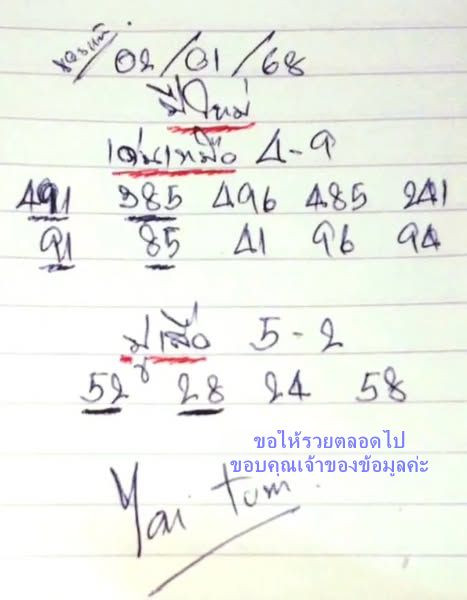 /02/01/68
ปีใหม่
เด่นเหมือ 4-9
491 985 496 485 241
91 85 41 96 94
ปูเสือ 5-2
52 28 24 58
ขอให้รวยตลอดไป
ขอบคุณเจ้าของข้อมูลค่ะ
Yai tum